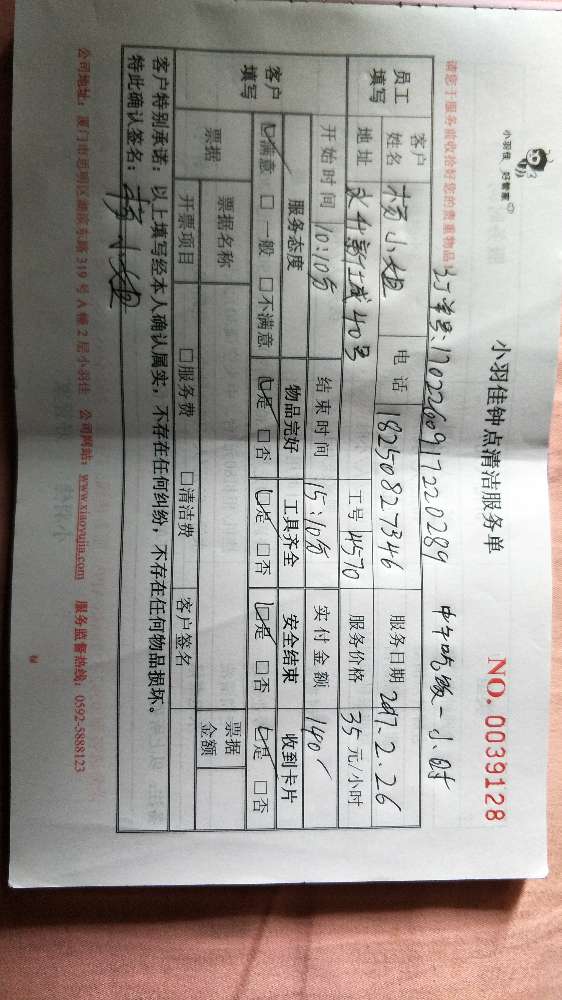 小羽佳 好管家
小羽佳钟点清洁服务单
NO. 0039128
请您于服务前收拾好您的贵重物品!
订单号:17022600917220289 中午吃饭一小时
员工填写
客户姓名 杨小姐 电话 18250827346 服务日期 2017.2.26
地址 新城40号 工号 4570 服务价格 35元/小时
开始时间 10:10分 结束时间 15:10分 实付金额 140
客户填写
服务态度 物品完好 工具齐全 安全结束 收到卡片
☑满意 □一般 □不满意 ☑是 □否 ☑是 □否 ☑是 □否 ☑是 □否
票据 票据名称 票据金额
开票项目 □服务费 □清洁费 客户签名
客户特别承诺:以上填写经本人确认属实,不存在任何纠纷,不存在任何物品损坏。
特此确认签名:杨小姐
公司地址:厦门市思明区湖滨东路319号A幢2层小羽佳 公司网站:www.xiaoyujia.com 服务监督热线:0592-5888123